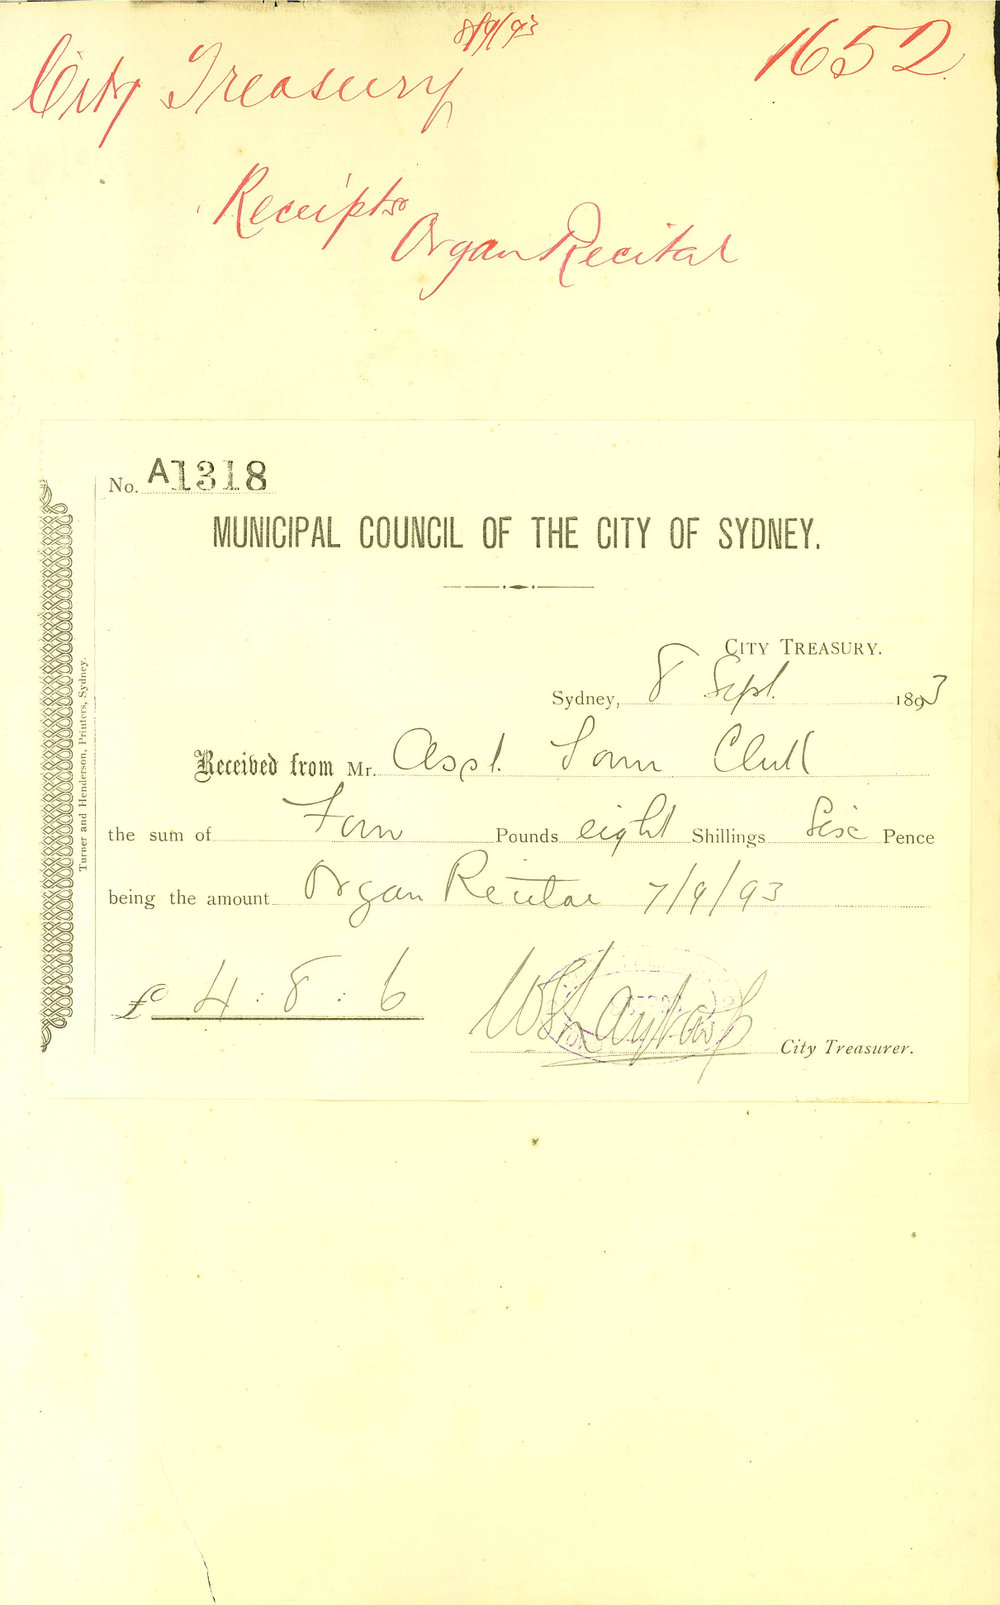 8/9/93
1652
City Treasury
Receipts
Organ Recital
No. A1318
MUNICIPAL COUNCIL OF THE CITY OF SYDNEY.
CITY TREASURY.
Sydney, 8 Sept. 1893
Received from Mr. Asst. Town Clerk
the sum of Four Pounds eight Shillings Six Pence
being the amount Organ Recital 7/9/93
£ 4 : 8 : 6
City Treasurer.
Turner and Henderson, Printers, Sydney.